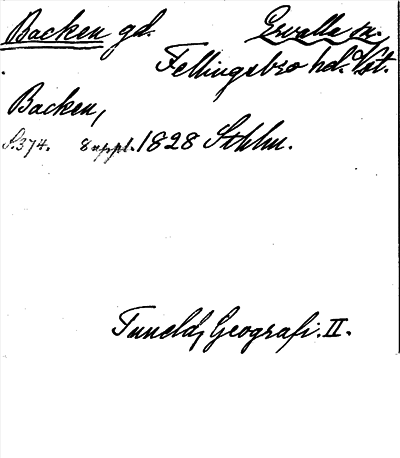 Backen gd. Ervalla sn.
Fellingsbro hd. Vst.
Backen,
S.374. 8 uppl. 1828 Sthlm.
Tunelds Geografi. II.